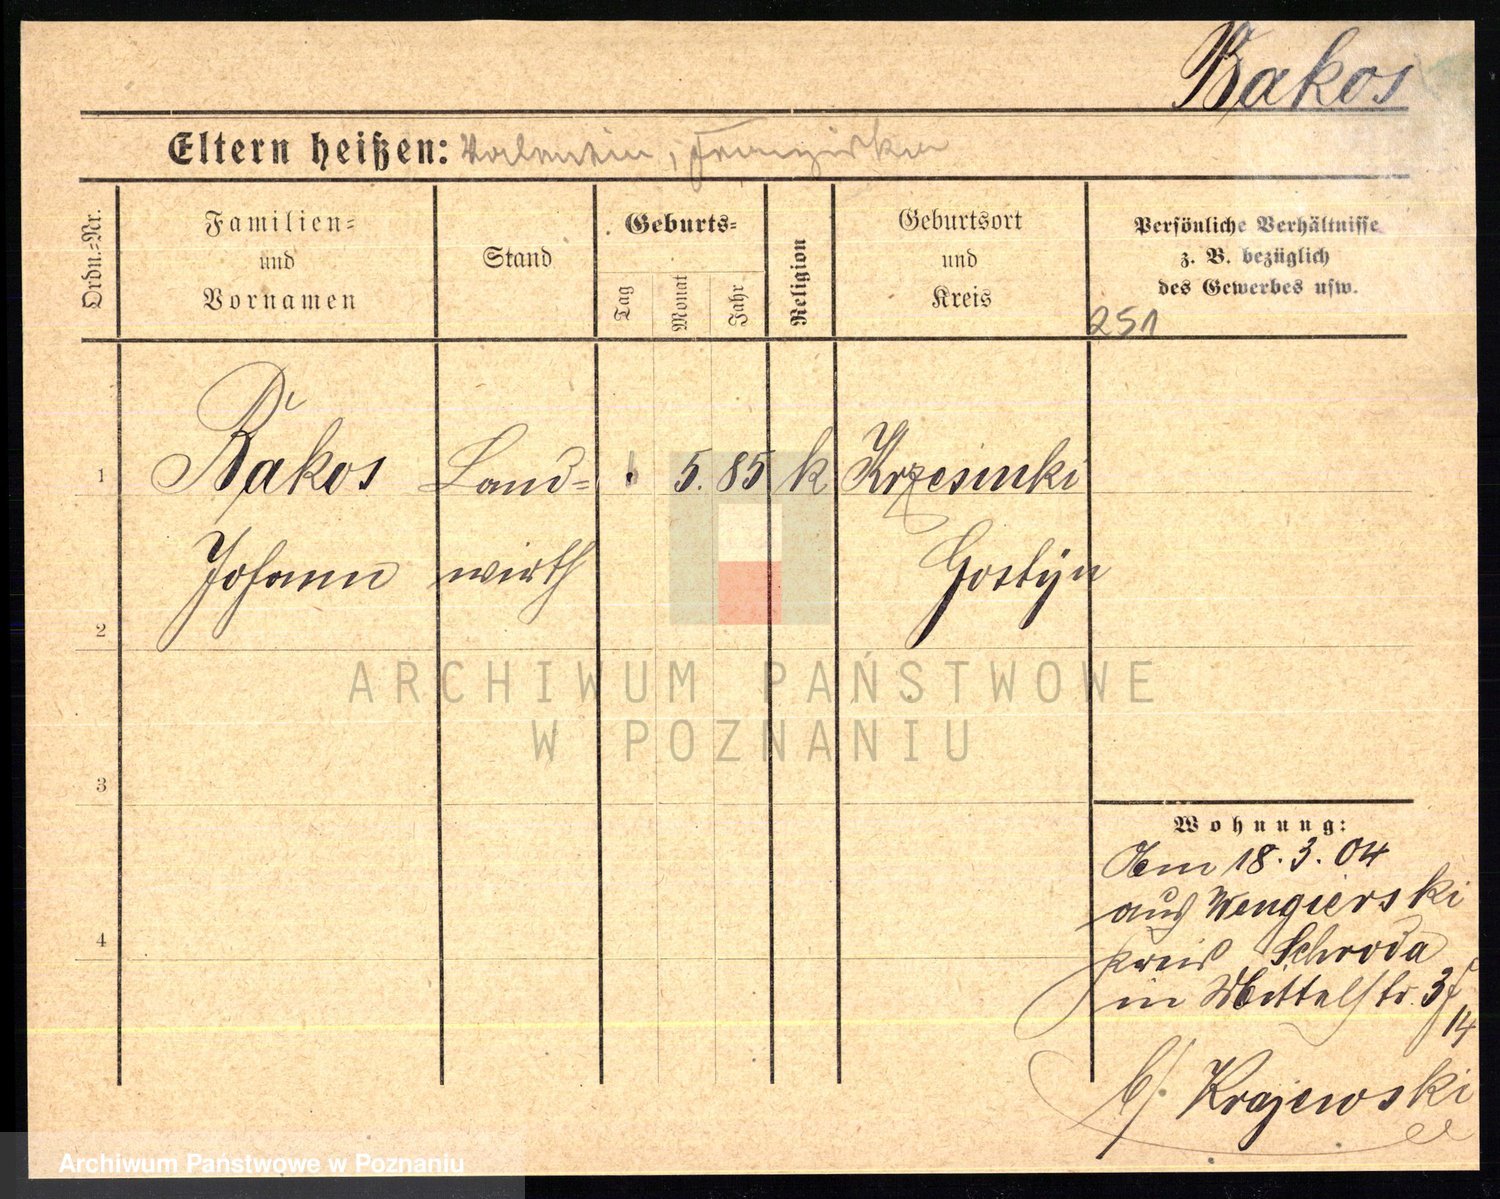 Bakos
Eltern heißen: Valentin, Franziska
Ordn.-Nr.
Familien-
und
Vornamen
Stand
Geburts-
Tag
Monat
Jahr
Religion
Geburtsort
und
Kreis
Persönliche Verhältnisse
z. B. bezüglich
des Gewerbes usw.
251
1
Bakos Land- 5. 85 k
Johann wirth Gostyn
2
3
4
Wohnung:
Am 18.3.04
aus Wengierski
Kreis Schroda
in Mittelstr.
14
b/ Krajewski
ARCHIWUM PAŃSTWOWE
W POZNANIU
Archiwum Państwowe w Poznaniu